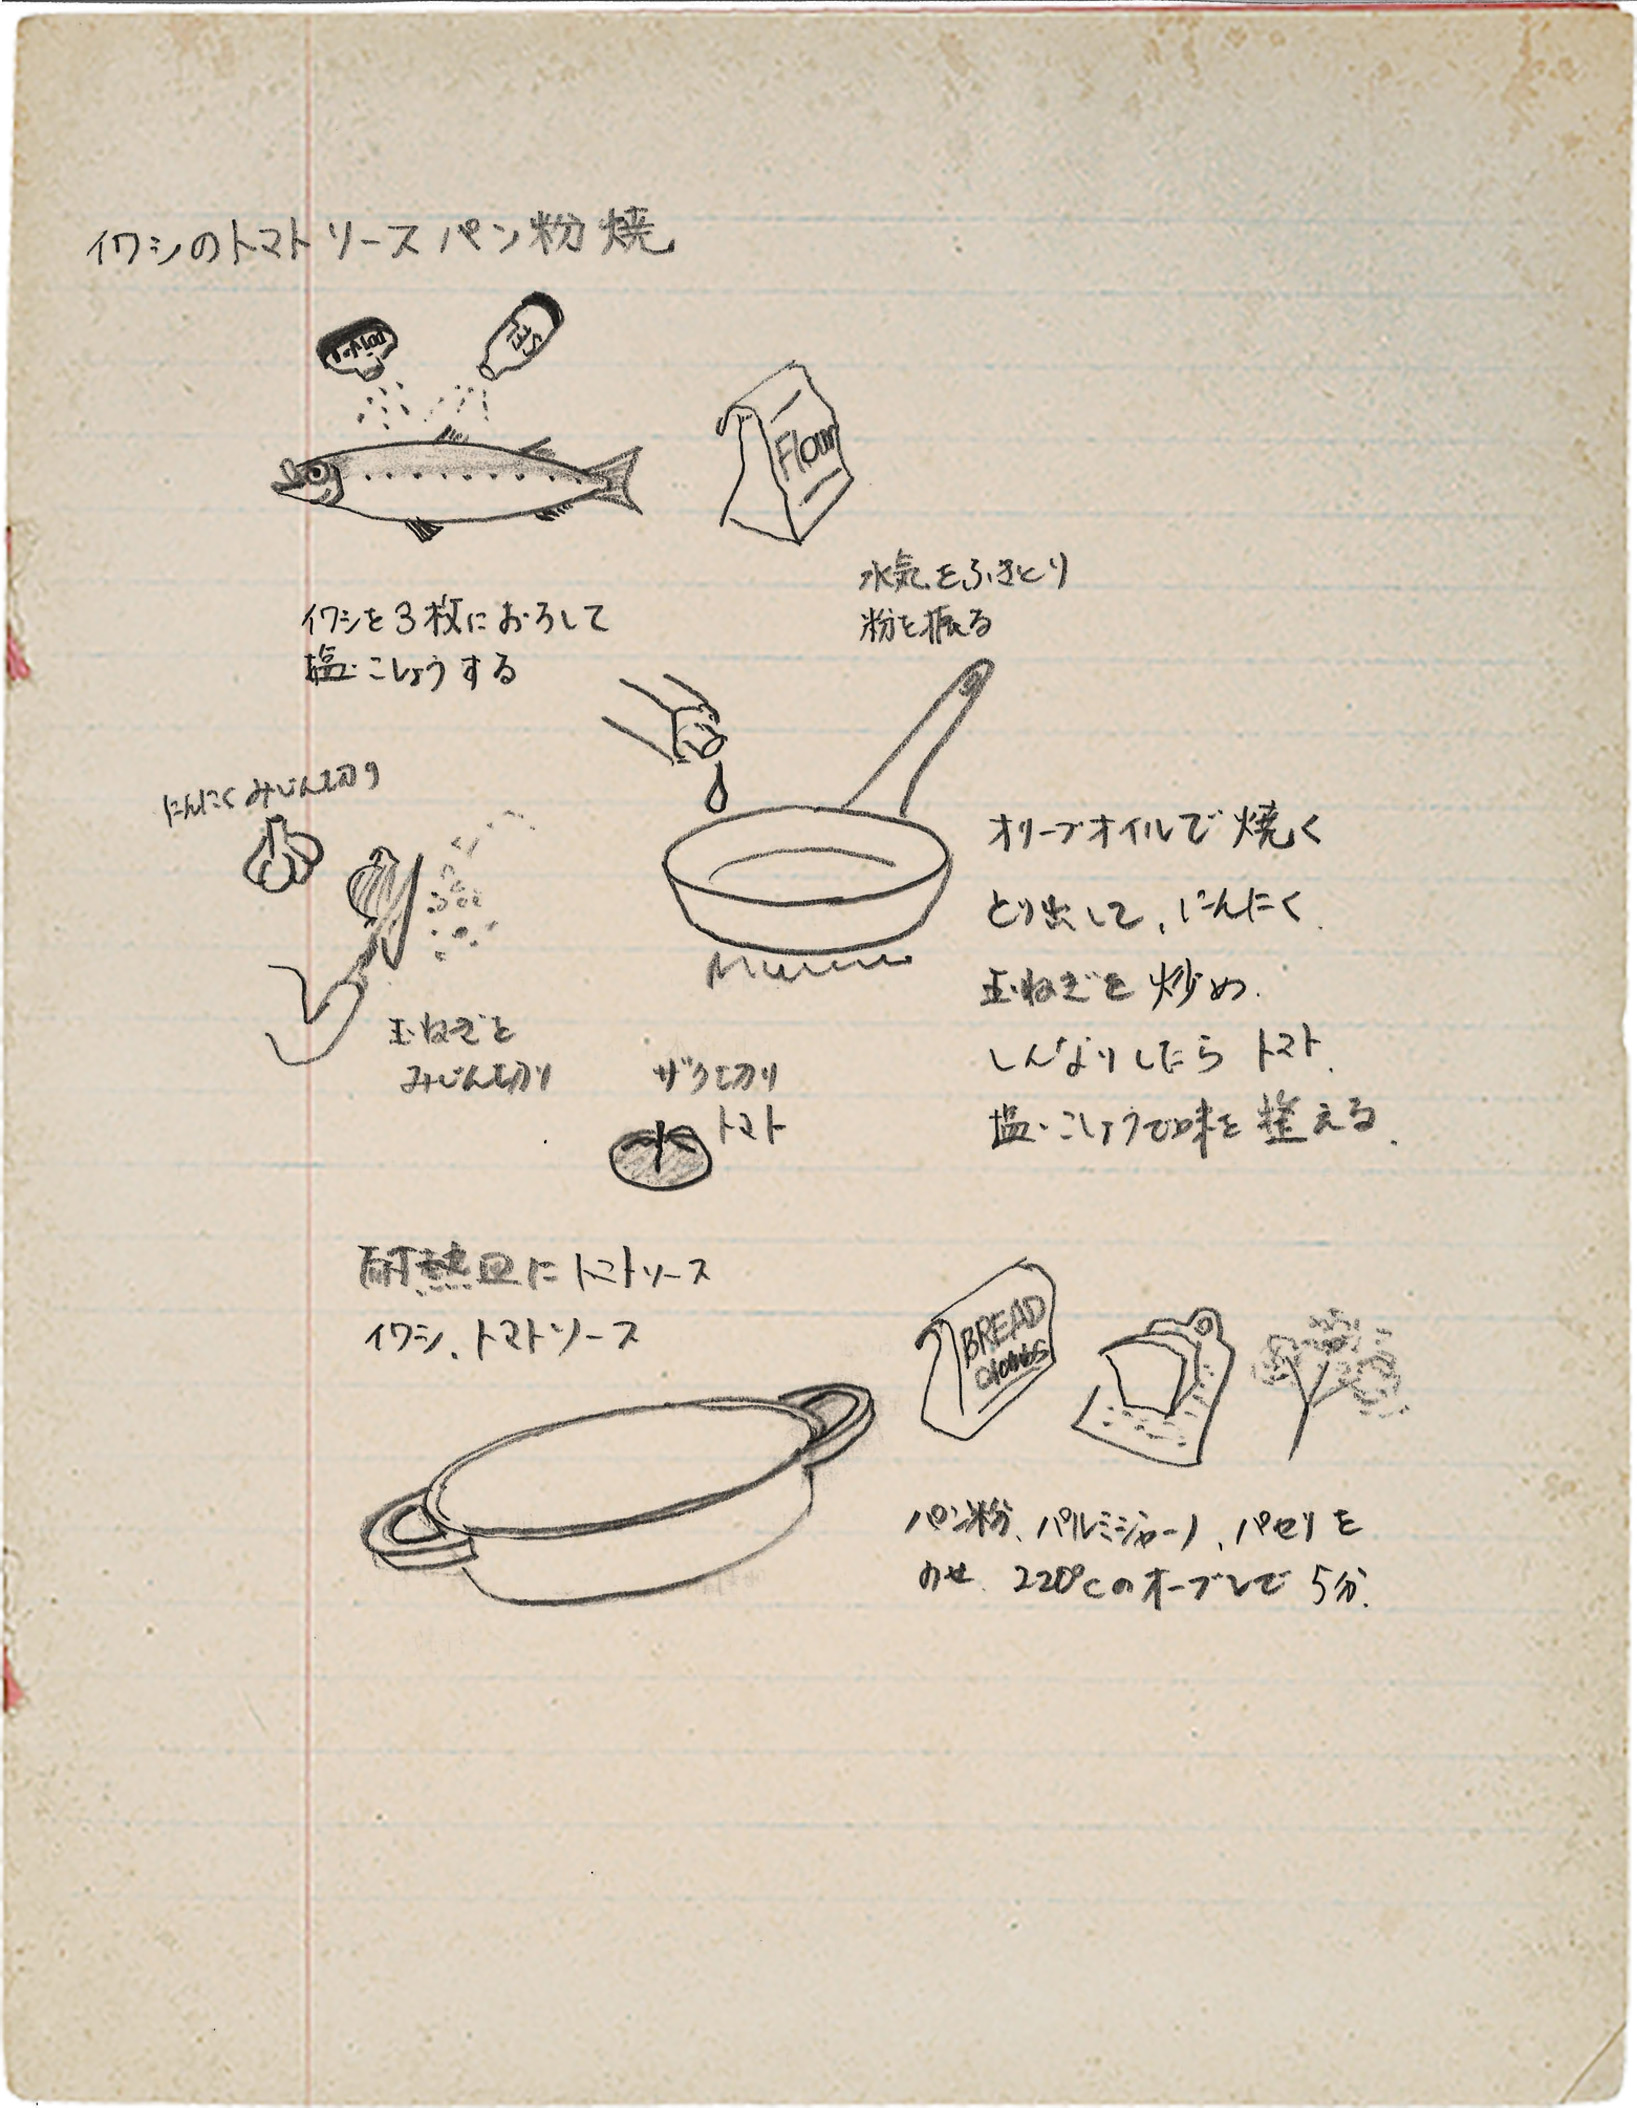 イワシのトマトソースパン粉焼
Flour
水気をふきとり
粉を振る
イワシを3枚におろして
塩・こしょうする
にんにくみじん切り
オリーブオイルで焼く
とり出して、にんにく、
玉ねぎを炒め、
しんなりしたらトマト、
塩・こしょうで味を整える。
玉ねぎを
みじん切り
ザク切り
トマト
耐熱皿にトマトソース
イワシ、トマトソース
BREAD
パン粉、パルミジャーノ、パセリを
のせ、220℃のオーブンで5分。